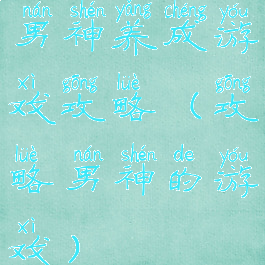 nán shén yǎng chéng yóu
男神养成游
xì gōng lüè gōng
戏攻略（攻
lüè nán shén de yóu
略男神的游
xì
戏）